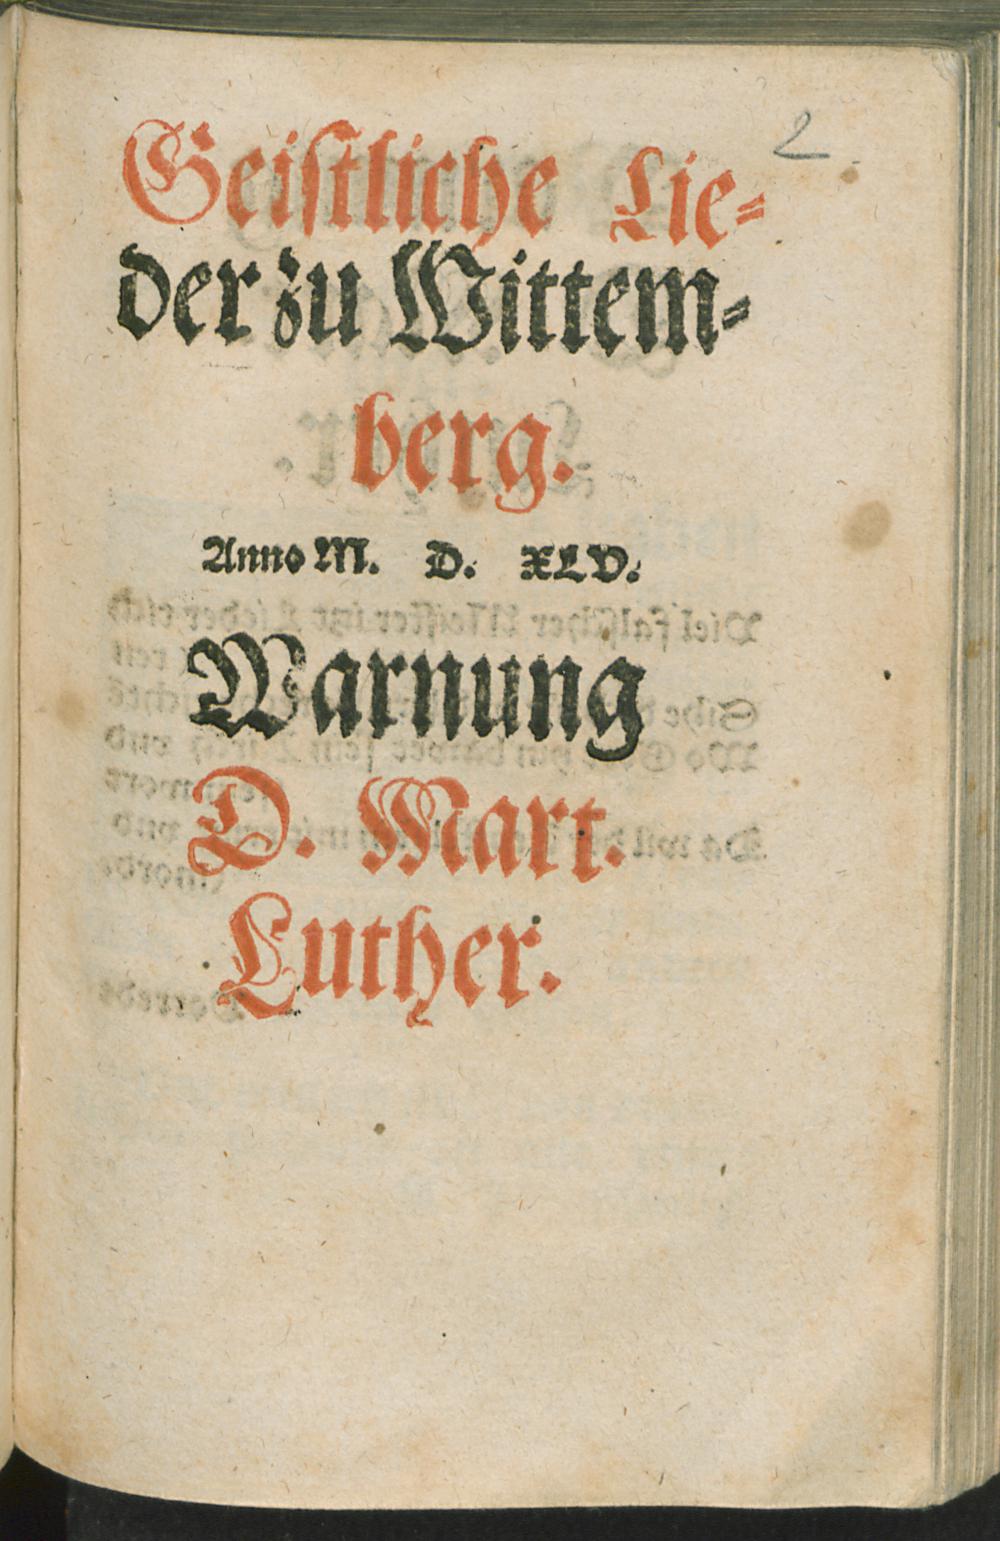 2
Geiſtliche Lie⸗
der zu Wittem⸗
berg.
Anno M. D. XLV.
Warnung
D. Mart.
Luther.